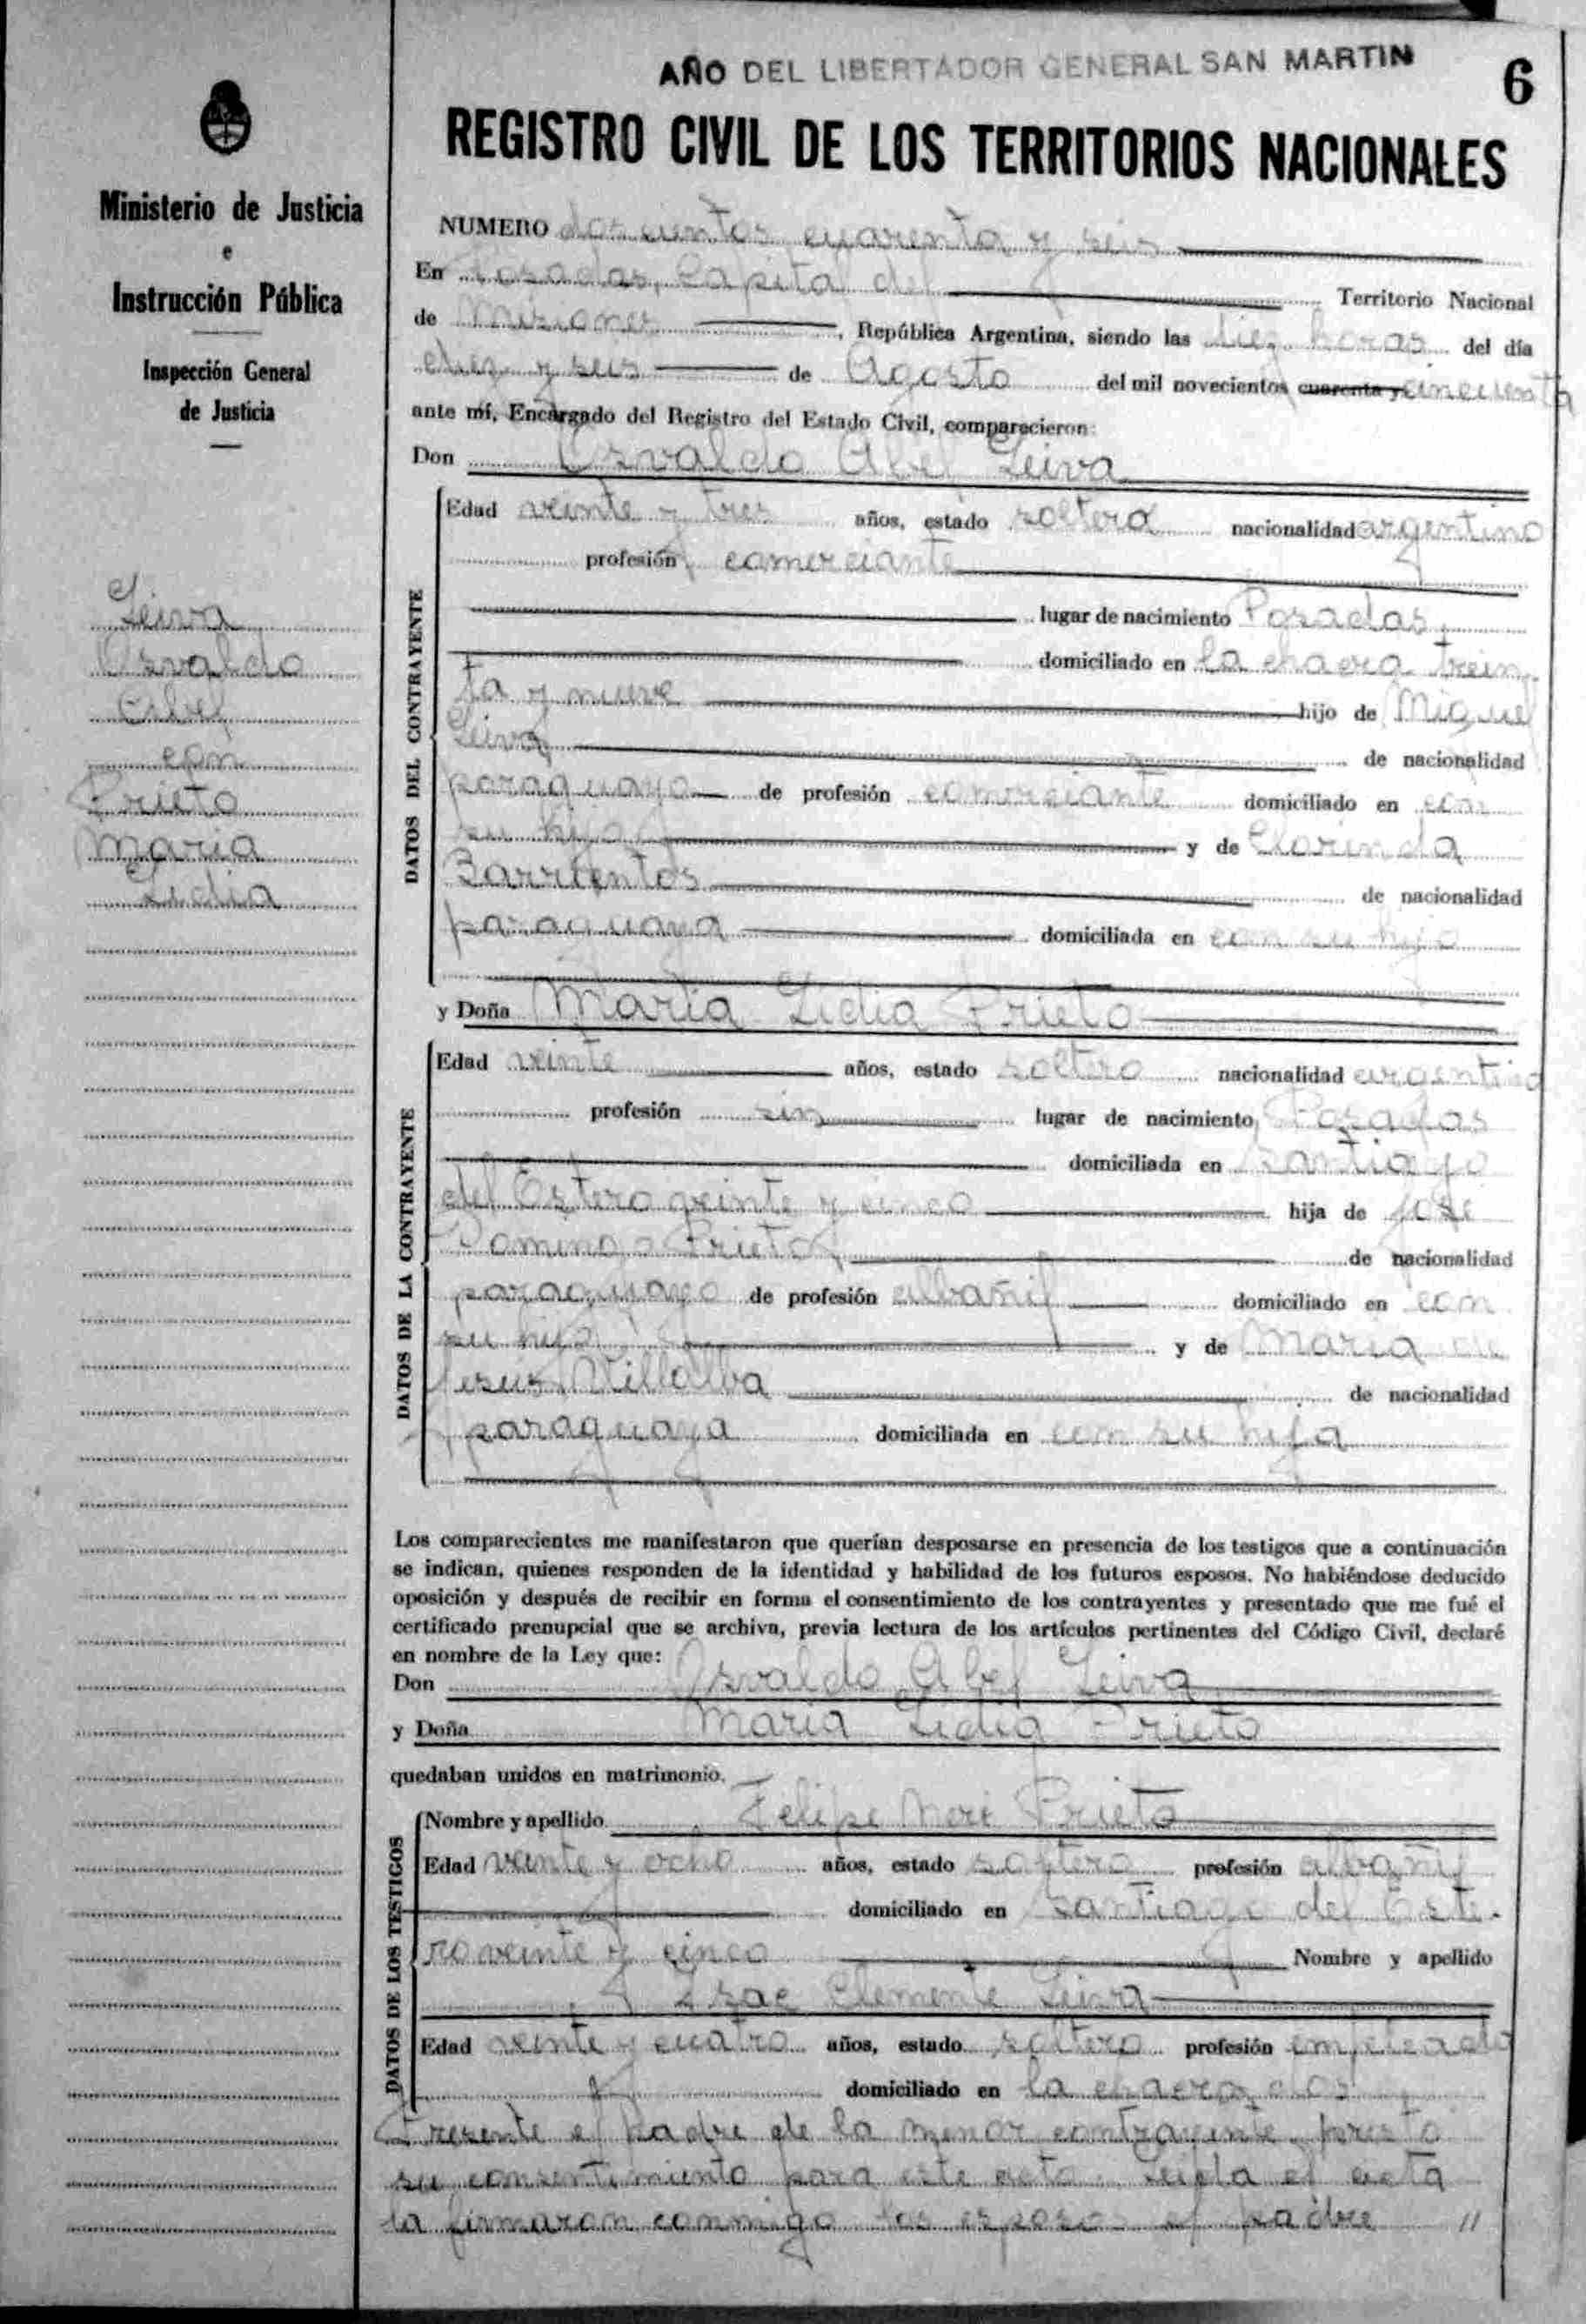 AÑO DEL LIBERTADOR GENERAL SAN MARTIN
6
REGISTRO CIVIL DE LOS TERRITORIOS NACIONALES
Ministerio de Justicia
e
Instrucción Pública
Inspección General
de Justicia
Leiva
Osvaldo
Abel
con
Prieto
Maria
Lidia
NUMERO doscientos cuarenta y seis
En Posadas, Capital del Territorio Nacional
de Misiones, República Argentina, siendo las diez horas del día
diez y seis de Agosto del mil novecientos cuarenta y cincuenta
ante mí, Encargado del Registro del Estado Civil, comparecieron:
Don Osvaldo Abel Leiva
DATOS DEL CONTRAYENTE
Edad veinte y tres años, estado soltero nacionalidad argentino
profesión comerciante
lugar de nacimiento Posadas,
domiciliado en la chacra trein
ta y nueve hijo de Miguel
Leiva de nacionalidad
paraguaya de profesión comerciante domiciliado en con
su hijo y de Clorinda
Barrientos de nacionalidad
paraguaya domiciliada en con su hijo
y Doña Maria Lidia Prieto
DATOS DE LA CONTRAYENTE
Edad veinte años, estado soltero nacionalidad argentina
profesión sin lugar de nacimiento Posadas
domiciliada en Santiago
del Estero veinte y cinco hija de José
Domingo Prieto de nacionalidad
paraguayo de profesión albañil domiciliado en con
su hija y de Maria de
Jesus Villalba de nacionalidad
paraguaya domiciliada en con su hija
Los comparecientes me manifestaron que querían desposarse en presencia de los testigos que a continuación
se indican, quienes responden de la identidad y habilidad de los futuros esposos. No habiéndose deducido
oposición y después de recibir en forma el consentimiento de los contrayentes y presentado que me fué el
certificado prenupcial que se archiva, previa lectura de los artículos pertinentes del Código Civil, declaré
en nombre de la Ley que:
Don Osvaldo Abel Leiva
y Doña Maria Lidia Prieto
quedaban unidos en matrimonio.
DATOS DE LOS TESTIGOS
Nombre y apellido Felipe Neri Prieto
Edad veinte y ocho años, estado soltero profesión albañil
domiciliado en Santiago del Este-
ro veinte y cinco Nombre y apellido
Isac Clemente Leiva
Edad veinte y cuatro años, estado soltero profesión empleado
domiciliado en la chacra dos
Presente el padre de la menor contrayente, presto
su consentimiento para este acto. leida el acta
la firmaron conmigo los esposos el padre //